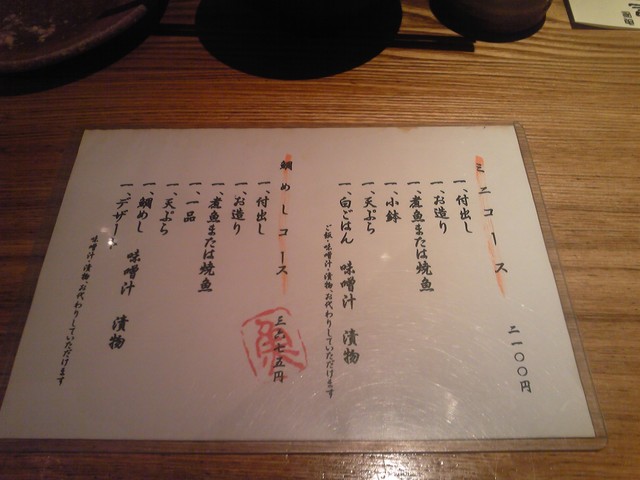 ミニコース
二一〇〇円
一、付出し
一、お造り
一、煮魚または焼魚
一、小鉢
一、天ぷら
一、白ごはん 味噌汁 漬物
ご飯・味噌汁・漬物、お代わりしていただけます
鯛めしコース
三六七五円
一、付出し
一、お造り
一、煮魚または焼魚
一、一品
一、天ぷら
一、鯛めし 味噌汁 漬物
一、デザート
味噌汁・漬物、お代わりしていただけます